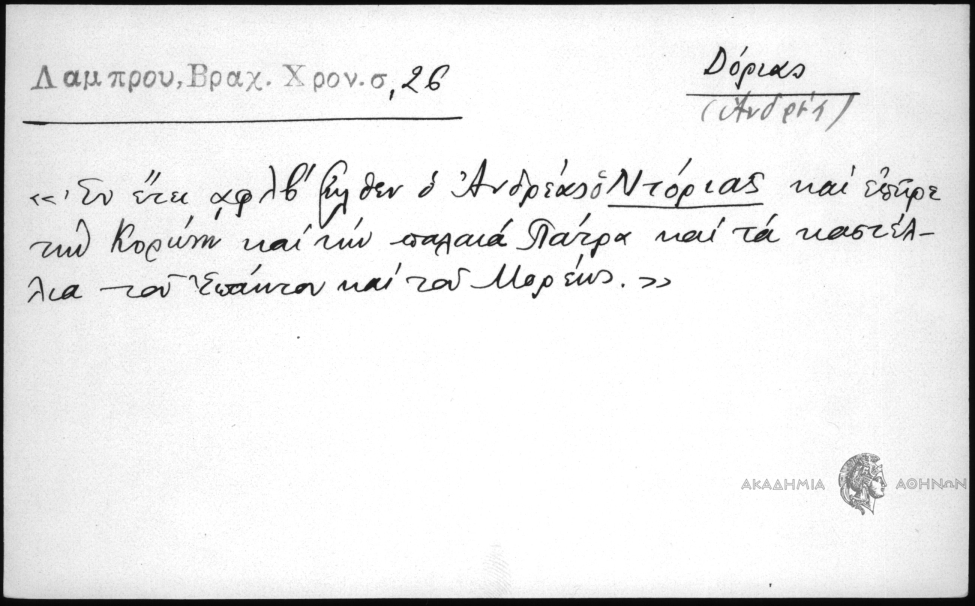 Λαμπρου, Βραχ. Χρον. σ, 26
Δόριας
(Ἀνδρέας)
«Ἐν ἔτει ͵αφλβ' ἦλθεν ὁ Ἀνδρέας ὁ Ντόριας καὶ ἐπῆρε
τὴν Κορώνη καὶ τὴν παλαιά Πάτρα καὶ τὰ καστέλ-
λια τοῦ Ἐπάκτου καὶ τοῦ Μορέως.»
ΑΚΑΔΗΜΙΑ ΑΘΗΝΩΝ